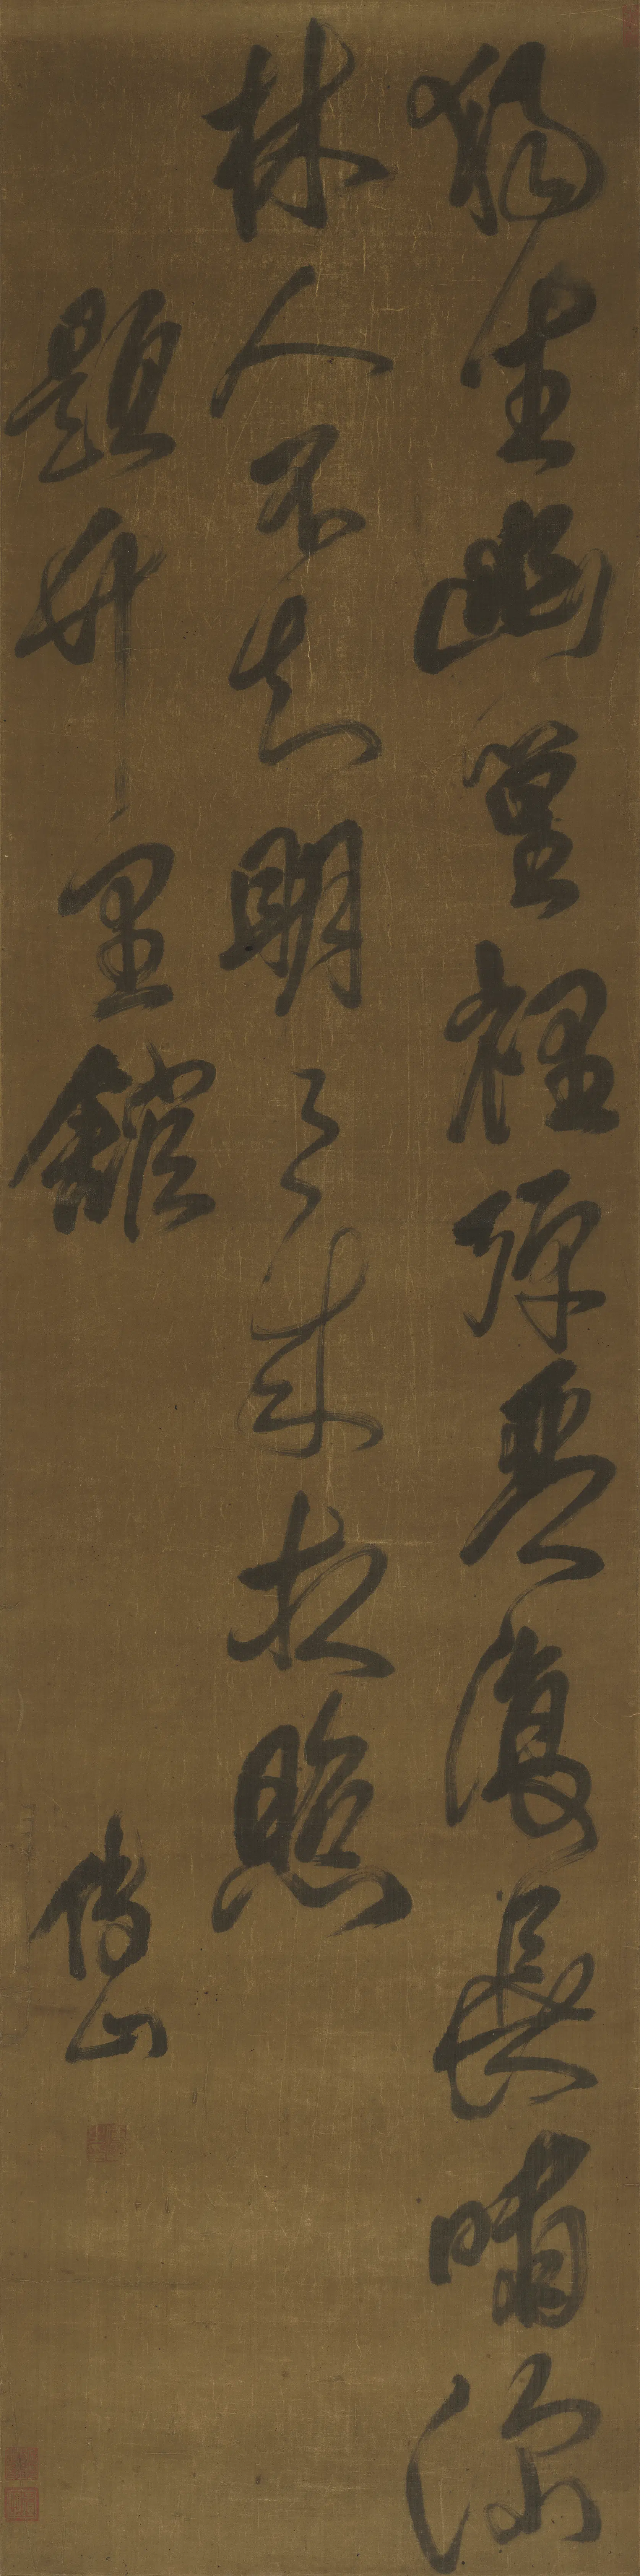 獨坐幽篁裡彈琴復長嘯深
林人不知明々來相照
題竹里館
傅山